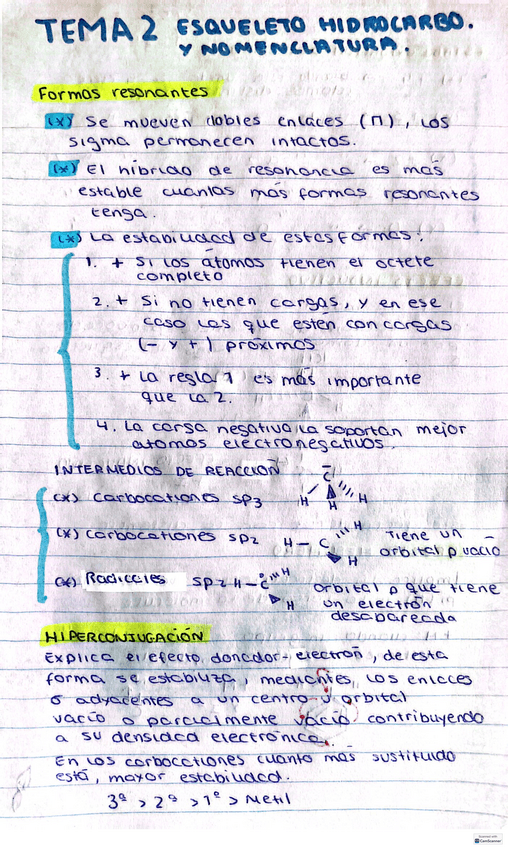 TEMA 2 ESQUELETO HIDROCARBO.
Y NOMENCLATURA.
Formas resonantes
(*) Se mueven dobles enlaces (Π), los
sigma permanecen intactos.
(*) El híbrido de resonancia es más
estable cuantas más formas resonantes
tenga.
(*) La estabilidad de estas formas:
1. + Si los átomos tienen el octete
completo
2. + Si no tienen cargas, y en ese
caso las que estén con cargas
(- y +) próximos
3. + La regla 1 es más importante
que la 2.
4. La carga negativa la soportan mejor
átomos electronegativos.
INTERMEDIOS DE REACCIÓN
(*) Carbocationes sp3
C
H H H
(*) Carbocationes sp2 H-C H H Tiene un
orbital p vacío
(*) Radicales sp2 H-C H H orbital p que tiene
un electrón
desapareado
HIPERCONJUGACIÓN
Explica el efecto donador-electrón, de esta
forma se estabiliza, mediantes, los enlaces
σ adyacentes a un centro u orbital
vacío o parcialmente vacío contribuyendo
a su densidad electrónica.
En los carbocationes cuanto más sustituido
está, mayor estabilidad.
3ª > 2ª > 1ª > Metil
CamScanner